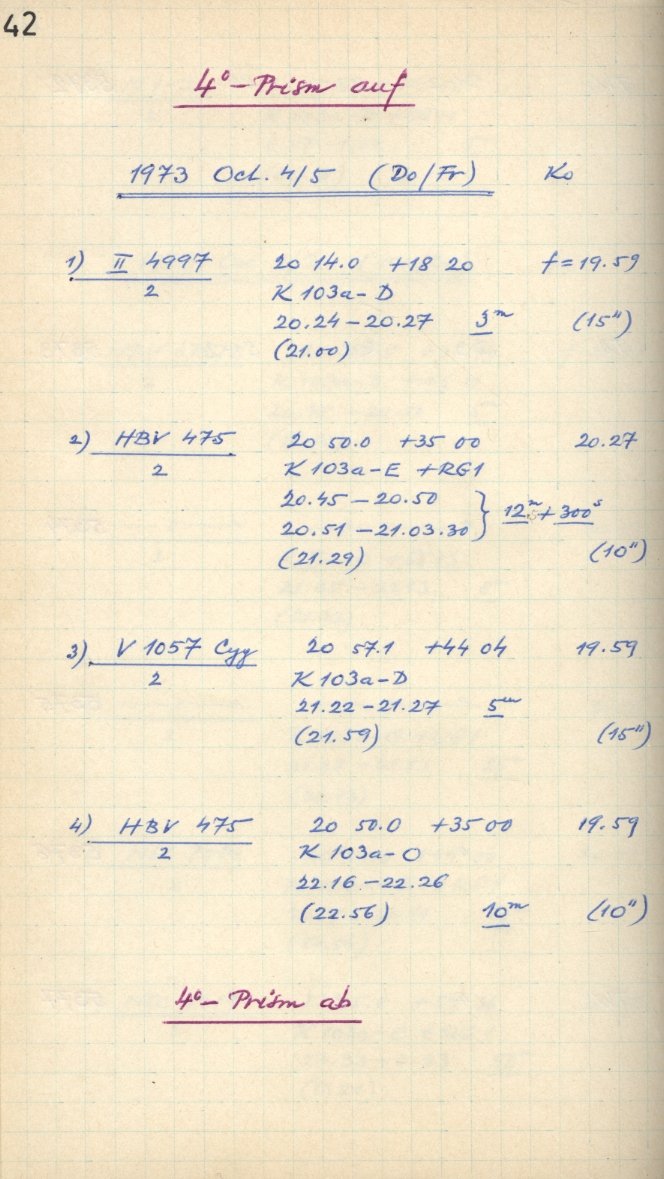 42
4°-Prism auf
1973 Oct. 4/5 (Do/Fr) Ko
1) II 4997 20 14.0 +18 20 f=19.59
2 K 103a-D
20.24-20.27 3m (15")
(21.00)
2) HBV 475 20 50.0 +35 00 20.27
2 K 103a-E +RG1
20.45-20.50
20.51-21.03.30 } 12m+300s
(21.29) (10")
3) V 1057 Cyg 20 57.1 +44 04 19.59
2 K 103a-D
21.22-21.27 5m
(21.59) (15")
4) HBV 475 20 50.0 +35 00 19.59
2 K 103a-O
22.16-22.26
(22.56) 10m (10")
4°-Prism ab